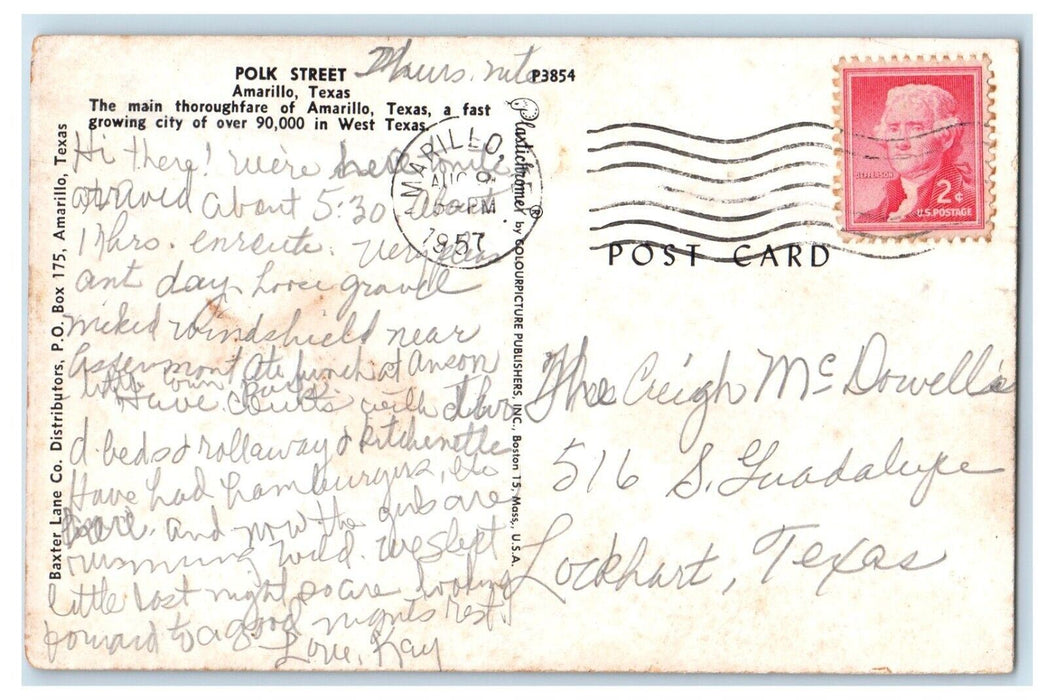 POLK STREET
Amarillo, Texas
The main thoroughfare of Amarillo, Texas, a fast
growing city of over 90,000 in West Texas.
P3854
Thurs. nite
Hi there! We're here
arrived about 5:30 about
11 hrs. enroute. Very pleas
ant day. Loose gravel
nicked windshield near
Aspermont Ate lunch at Anson
little town park.
Have courts with
d. beds & rollaway & kitchenette
Have had hamburgers, etc
here. and now the girls are
running wild. We slept
little last night so are looking
forward to a good nights rest.
Love, Kay
Baxter Lane Co. Distributors, P.O. Box 175, Amarillo, Texas
Plastichrome® by COLOURPICTURE PUBLISHERS, INC., Boston 15, Mass., U.S.A.
AMARILLO,
AUG 9
PM
1957
JEFFERSON
2¢
U.S. POSTAGE
POST CARD
The Creigh McDowell's
516 S. Guadalupe
Lockhart, Texas